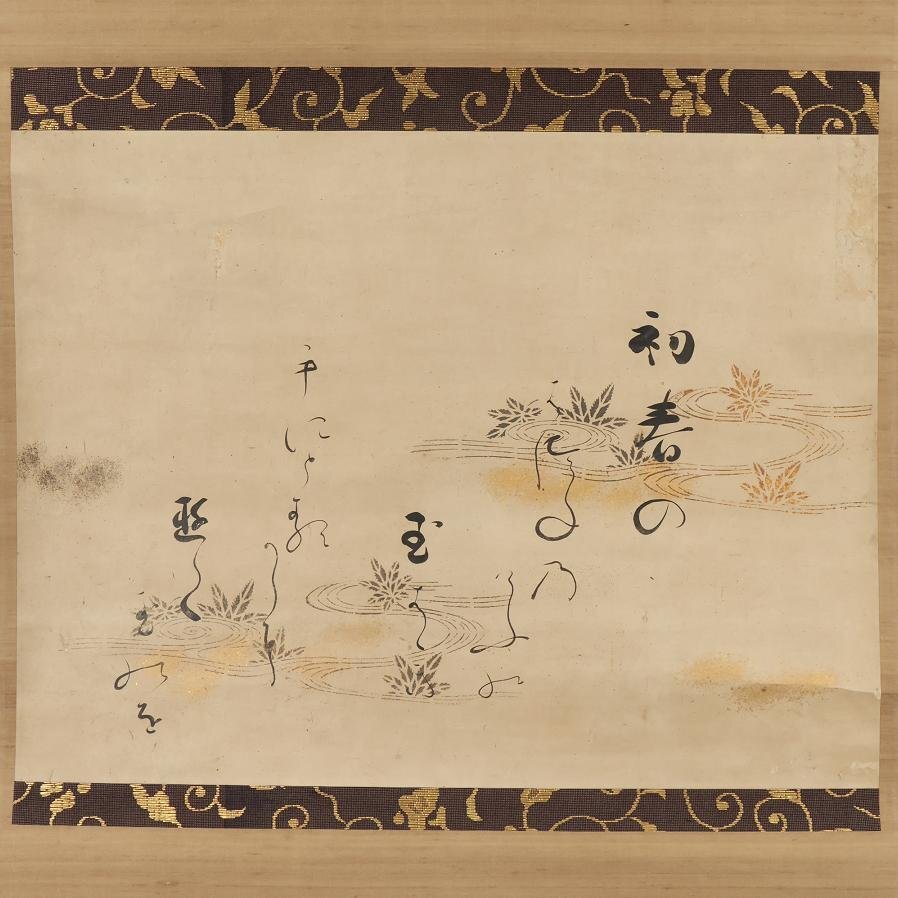 初春の
はつねの
けふの
玉はゝき
手にとる
からに
遊らく
たまのを